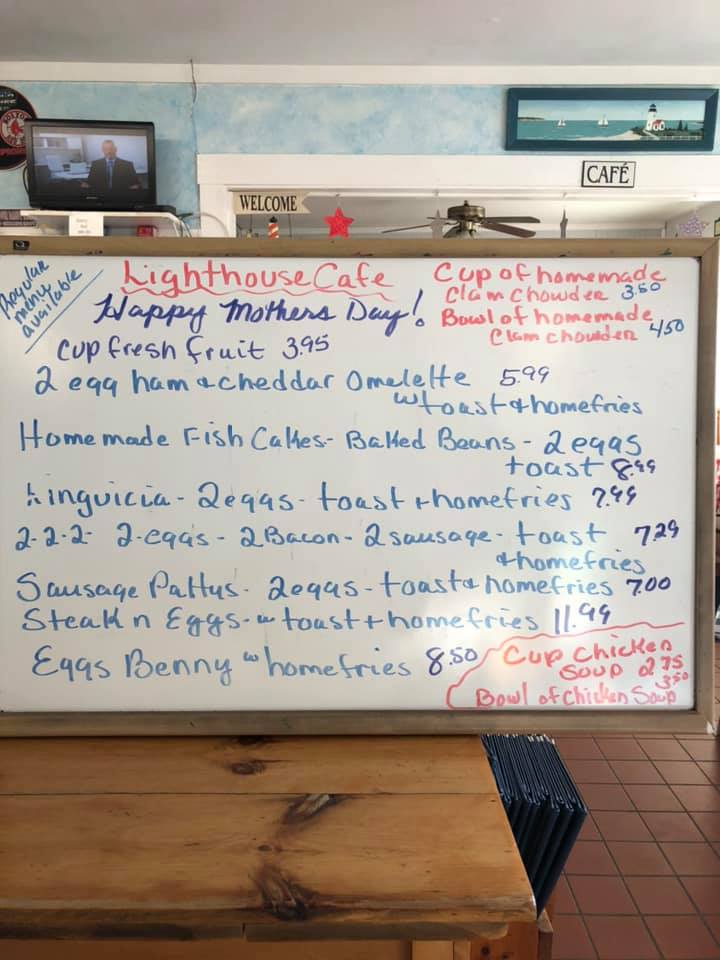 BOSTON
WELCOME
CAFÉ
Regular
menu
available
Lighthouse Cafe
Happy Mothers Day!
Cup of homemade
Clam Chowder 3.50
Bowl of homemade
Clam chowder 4.50
Cup fresh fruit 3.95
2 egg ham & cheddar Omelette 5.99
w toast & homefries
Homemade Fish Cakes - Baked Beans - 2 eggs
toast 8.99
Linguicia - 2 eggs - toast + homefries 7.99
2-2-2- 2-eggs - 2 Bacon - 2 sausage - toast 7.29
& homefries
Sausage Pattys - 2 eggs - toast & homefries 7.00
Steak n Eggs - w toast + homefries 11.99
Eggs Benny w homefries 8.50
Cup Chicken
Soup 2.75
3.50
Bowl of Chicken Soup